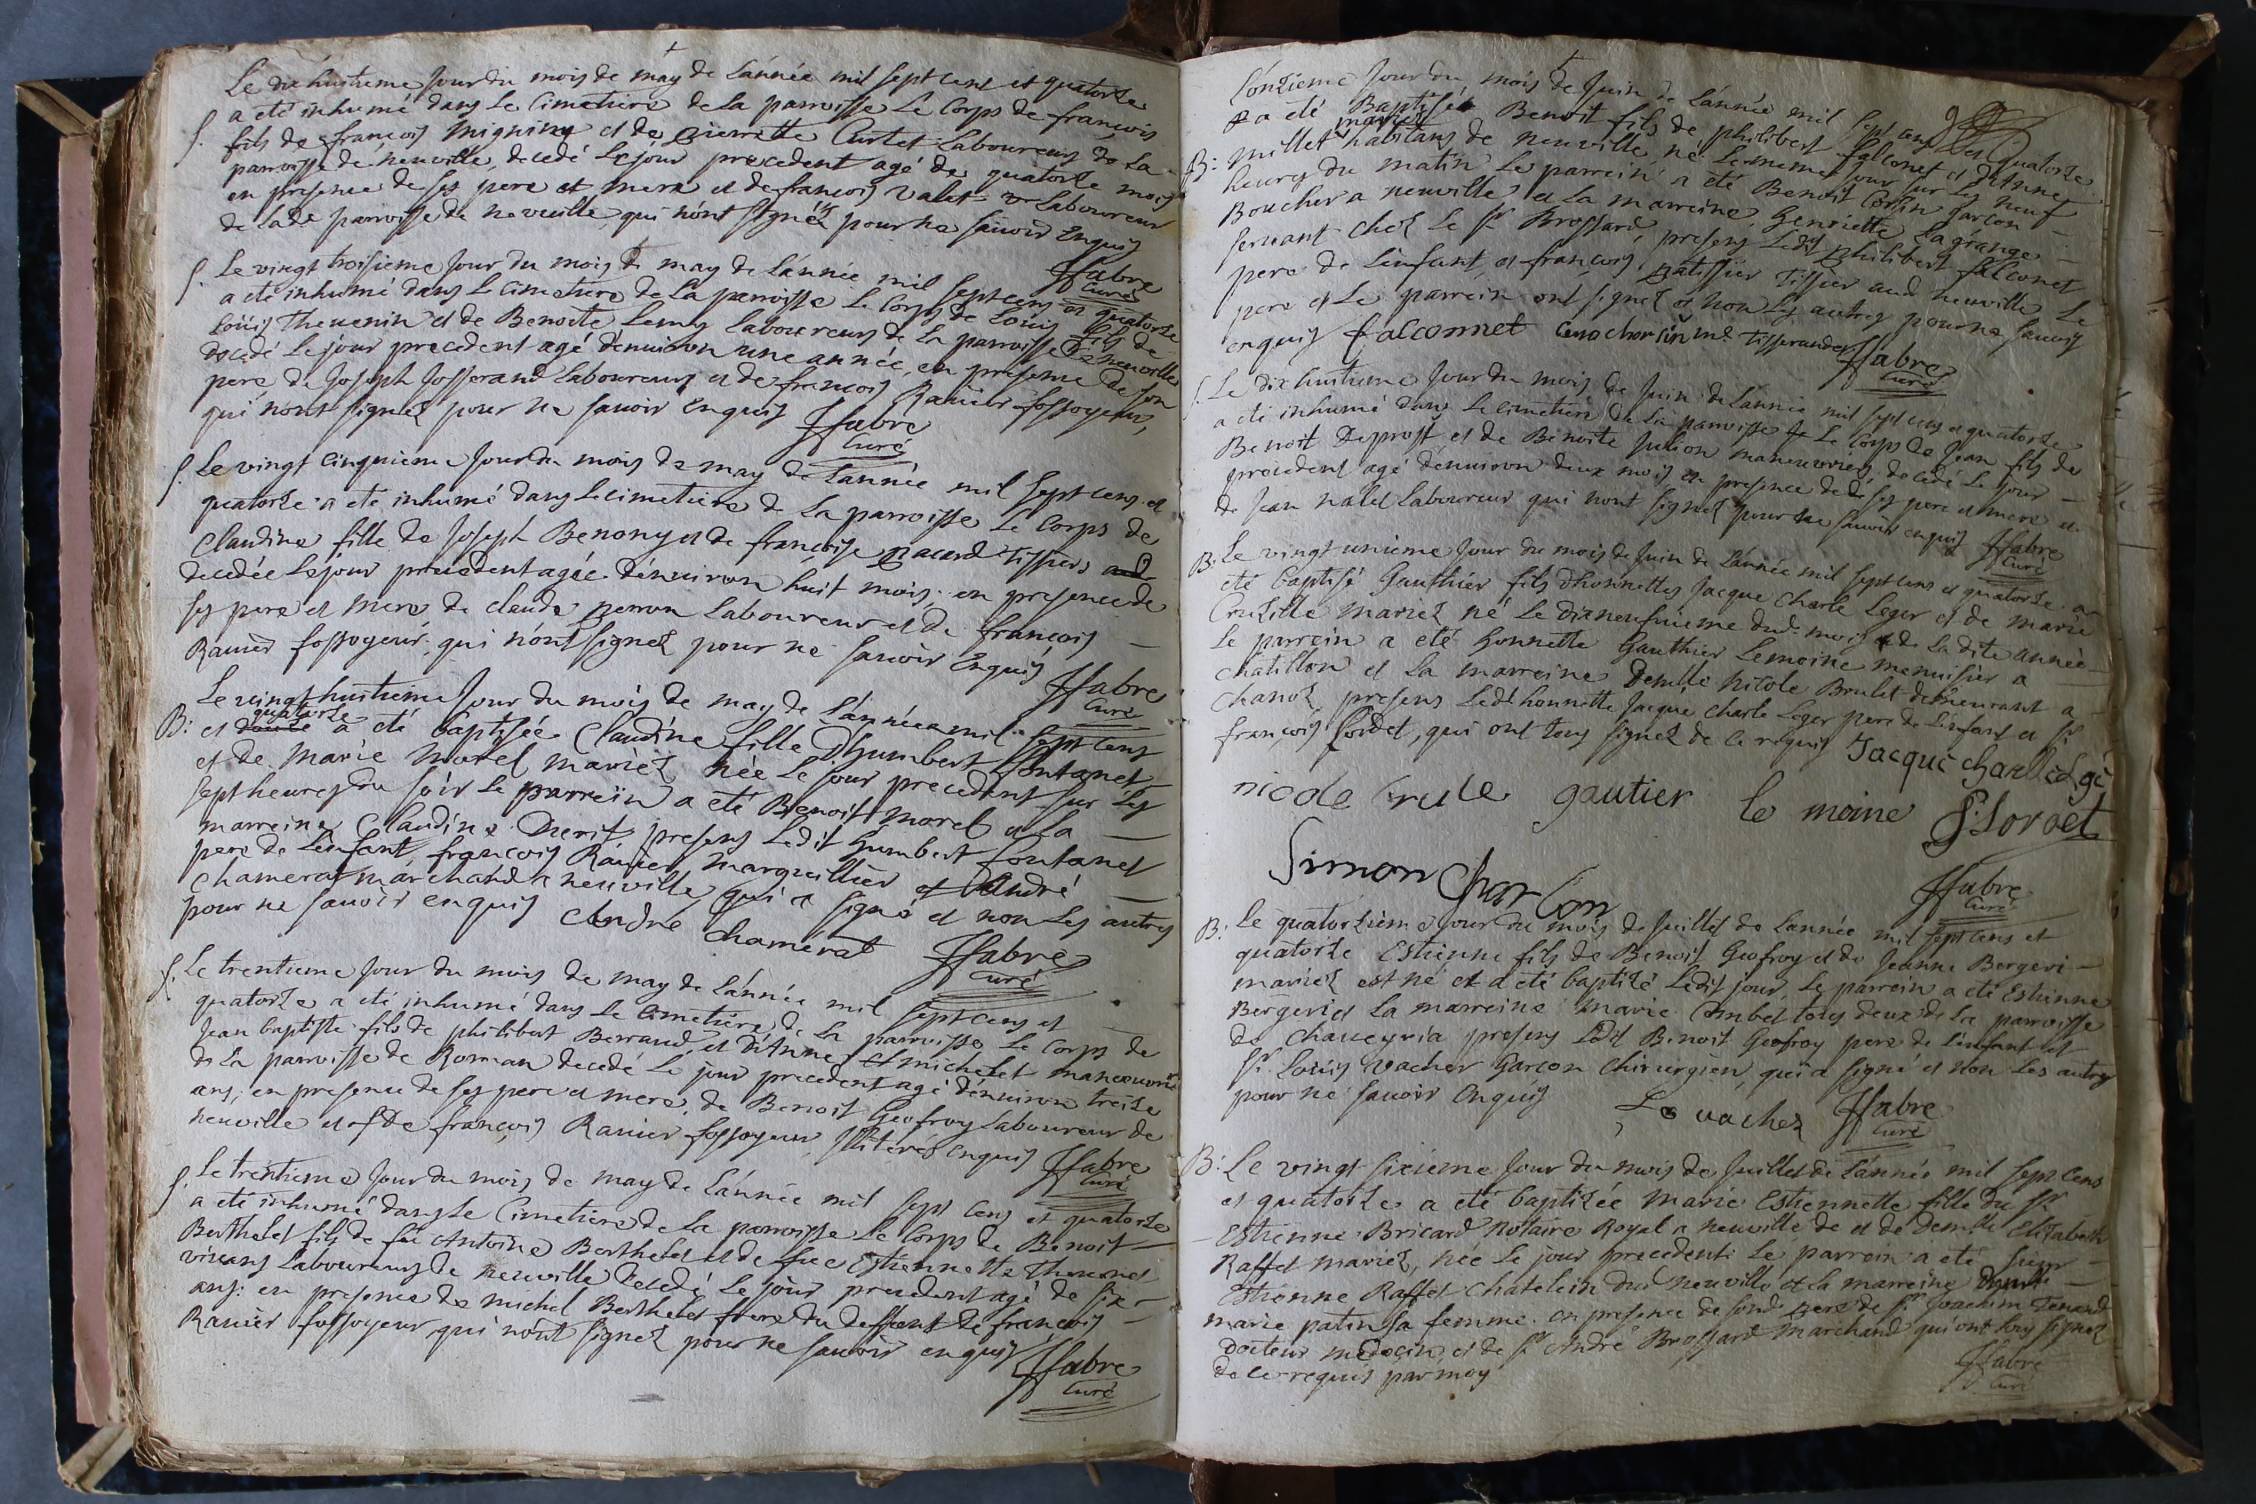 Le dix huitieme Jour du mois de may de L'année mil sept cent et quatorze
S. a eté inhumé dans Le Cimetiere de La parroisse Le Corps de françois
fils de françois Migniny et de pierrette Curtet Laboureurs de La
parroisse de neuville, decedé Le jour precedent agé de quatorze mois
en presence de ses pere et mere et de françois Valet Laboureur
de lade parroisse de neuville, qui n'ont signéz pour ne sauoir Enquis
ffabre
Curé
S. Le vingt troisieme Jour du mois de may de L'année mil sept cens et quatorze
a eté inhumé dans Le Cimetiere de La parroisse Le Corps de Loüis fils de
Loüis Theuenin et de Benoite Lemy Laboureurs de La parroisse de neuville
decedé Le jour precedent agé d'enuiron une année, en presence de son
pere de Joseph Josserand Laboureurs et de françois Rauier fossoyeur,
qui n'ont signez pour ne sauoir Enquis ffabre
Curé
S. Le vingt Cinquieme Jour du mois de may de L'année mil sept cens et
quatorze a eté inhumé dans Le Cimetiere de La parroisse Le Corps de
Claudine fille de Joseph Benony et de françoise pacard Tissiers
decedée Le jour precedent agée d'enuiron huit mois, en presence de
ses pere et mere de Claude perron Laboureur et de françois
Rauier fossoyeur, qui n'ont signez pour ne sauoir Enquis
ffabre
Curé
Le vingt huitieme Jour du mois de may de L'année mil sept cens
quatorze
B: et douze a eté baptisée Claudine fille D'humbert fontanet
et de Marie Morel mariéz née Le jour precedent sur Les
sept heures du soir Le parrein a eté Benoit Morel et La
marreine Claudine Merit, presens Ledit humbert fontanet
pere de L'enfant, françois Rauier Marguillier et André
Chamerat marchand a neuville qui a signé et non Les autres
pour ne sauoir enquis André Chamerat ffabre
Curé
S. Le trentieme Jour du mois de may de L'année mil sept cens et
quatorze a eté inhumé dans Le Cimetiere de La parroisse Le Corps de
Jean baptiste fils de philibert Berraud et D'Anne michelet manoeuvriers
de La parroisse de Roman decedé Le jour precedent agé d'enuiron treize
ans, en presence de ses pere et mere de Benoit Geofroy Laboureur de
neuville et de françois Rauier fossoyeur, Illiterés enquis ffabre
Curé
S. Le trentieme Jour du mois de may de L'année mil sept cens et quatorze
a eté inhumé dans Le Cimetiere de La parroisse Le Corps de Benoit
Berthelet fils de feu Antoine Berthelet et de feue Estiennette Theuenet
viuans Laboureurs de neuville decedé Le jour precedent agé de six
ans: en presence de michel Berthelet frere du deffunt de françois
Rauier fossoyeur, qui n'ont signez pour ne sauoir enquis ffabre
Curé
L'onzieme Jour du mois de Juin de L'année mil sept cens et quatorze
a eté Baptisé Benoit fils de philibert falconet et d'Anne
mariez
B: millet habitans de neuville, né Le meme jour sur Les neuf
heures du matin Le parrein a eté Benoit Corsin garcon
Boucher a neuville et La marreine, Henriette Lagrange
seruant chez Le sr Brossard, presens Ledit philibert falconet
pere de L'enfant, et françois patissier Tissier aud neuville, Le
pere et Le parrein ont signez et non Les autres pour ne sauoir
enquis falconnet Tisserandes ffabre
Curé
S. Le dix huitieme Jour du mois de Juin de L'année mil sept cens et quatorze
a eté inhumé dans Le Cimetiere de La parroisse Le Corps de Jean fils de
Benoit Desprost et de Benoite Julion manoeuvriers, decedé Le jour
precedent agé d'enuiron deux mois en presence de ses pere et mere et
de Jean nalet Laboureur qui n'ont signez pour ne sauoir enquis ffabre
Curé
B: Le vingt unieme Jour du mois de Juin de L'année mil sept cens et quatorze a
eté baptisé Gauthier fils d'honnettes Jacque Charle Leger et de Marie
Cruzille mariez né Le dixneufuieme dud. mois de La dite année
Le parrein a eté honnette Gauthier Lemoine menuisier a
chatillon et La marreine Demlle Nicole Brulet demeurant a
Chanoz, presens Led. honnette Jacque Charle Leger pere de L'enfant et sr
françois Sordet, qui ont tous signez de ce requis Jacque charlle Legé
nicole brule gautier le moine f. Sordet
Simon Charlon ffabre
Curé
B: Le quatorzieme Jour du mois de Juillet de L'année mil sept cens et
quatorze Estienne fils de Benoit Geofroy et de Jeanne Bergeri
mariez est né et a eté baptizé Ledit jour Le parrein a eté Estienne
Bergeri et La marreine Marie Combet tous deux de La parroisse
de Chaueyria presens Ledit Benoit Geofroy pere de L'enfant et
sr. Loüis vacher Garcon chirurgien, qui a signé et non Les autres
pour ne sauoir Enquis Ls vacher ffabre
Curé
B: Le vingt sixieme Jour du mois de Juillet de L'année mil sept cens
et quatorze a eté baptizée Marie Estiennette fille du sr.
Estienne Bricard Notaire Royal a neuville et de Demlle Elizabeth
Raffet mariez, née Le jour precedent Le parrein a eté sieur
Estienne Raffet Chatelein dud neuville et La marreine
marie patin sa femme. en presence de sond pere de sr Joachim Tenand
docteur medecin, et de sr André Brossard marchand qui ont tous signez
de ce requis par moy ffabre
Curé